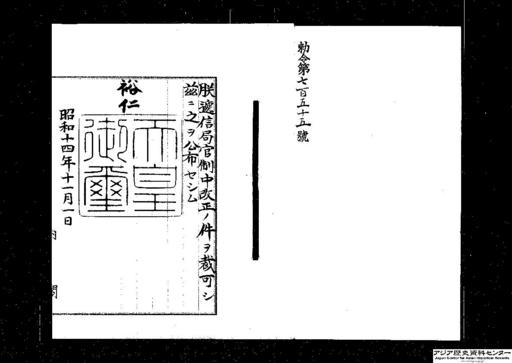 勅令第七百五十五號
朕遞信局官制中改正ノ件ヲ裁可シ
玆ニ之ヲ公布セシム
裕仁
天皇
御璽
昭和十四年十一月一日
内閣
アジア歴史資料センター
Japan Center for Asian Historical Records